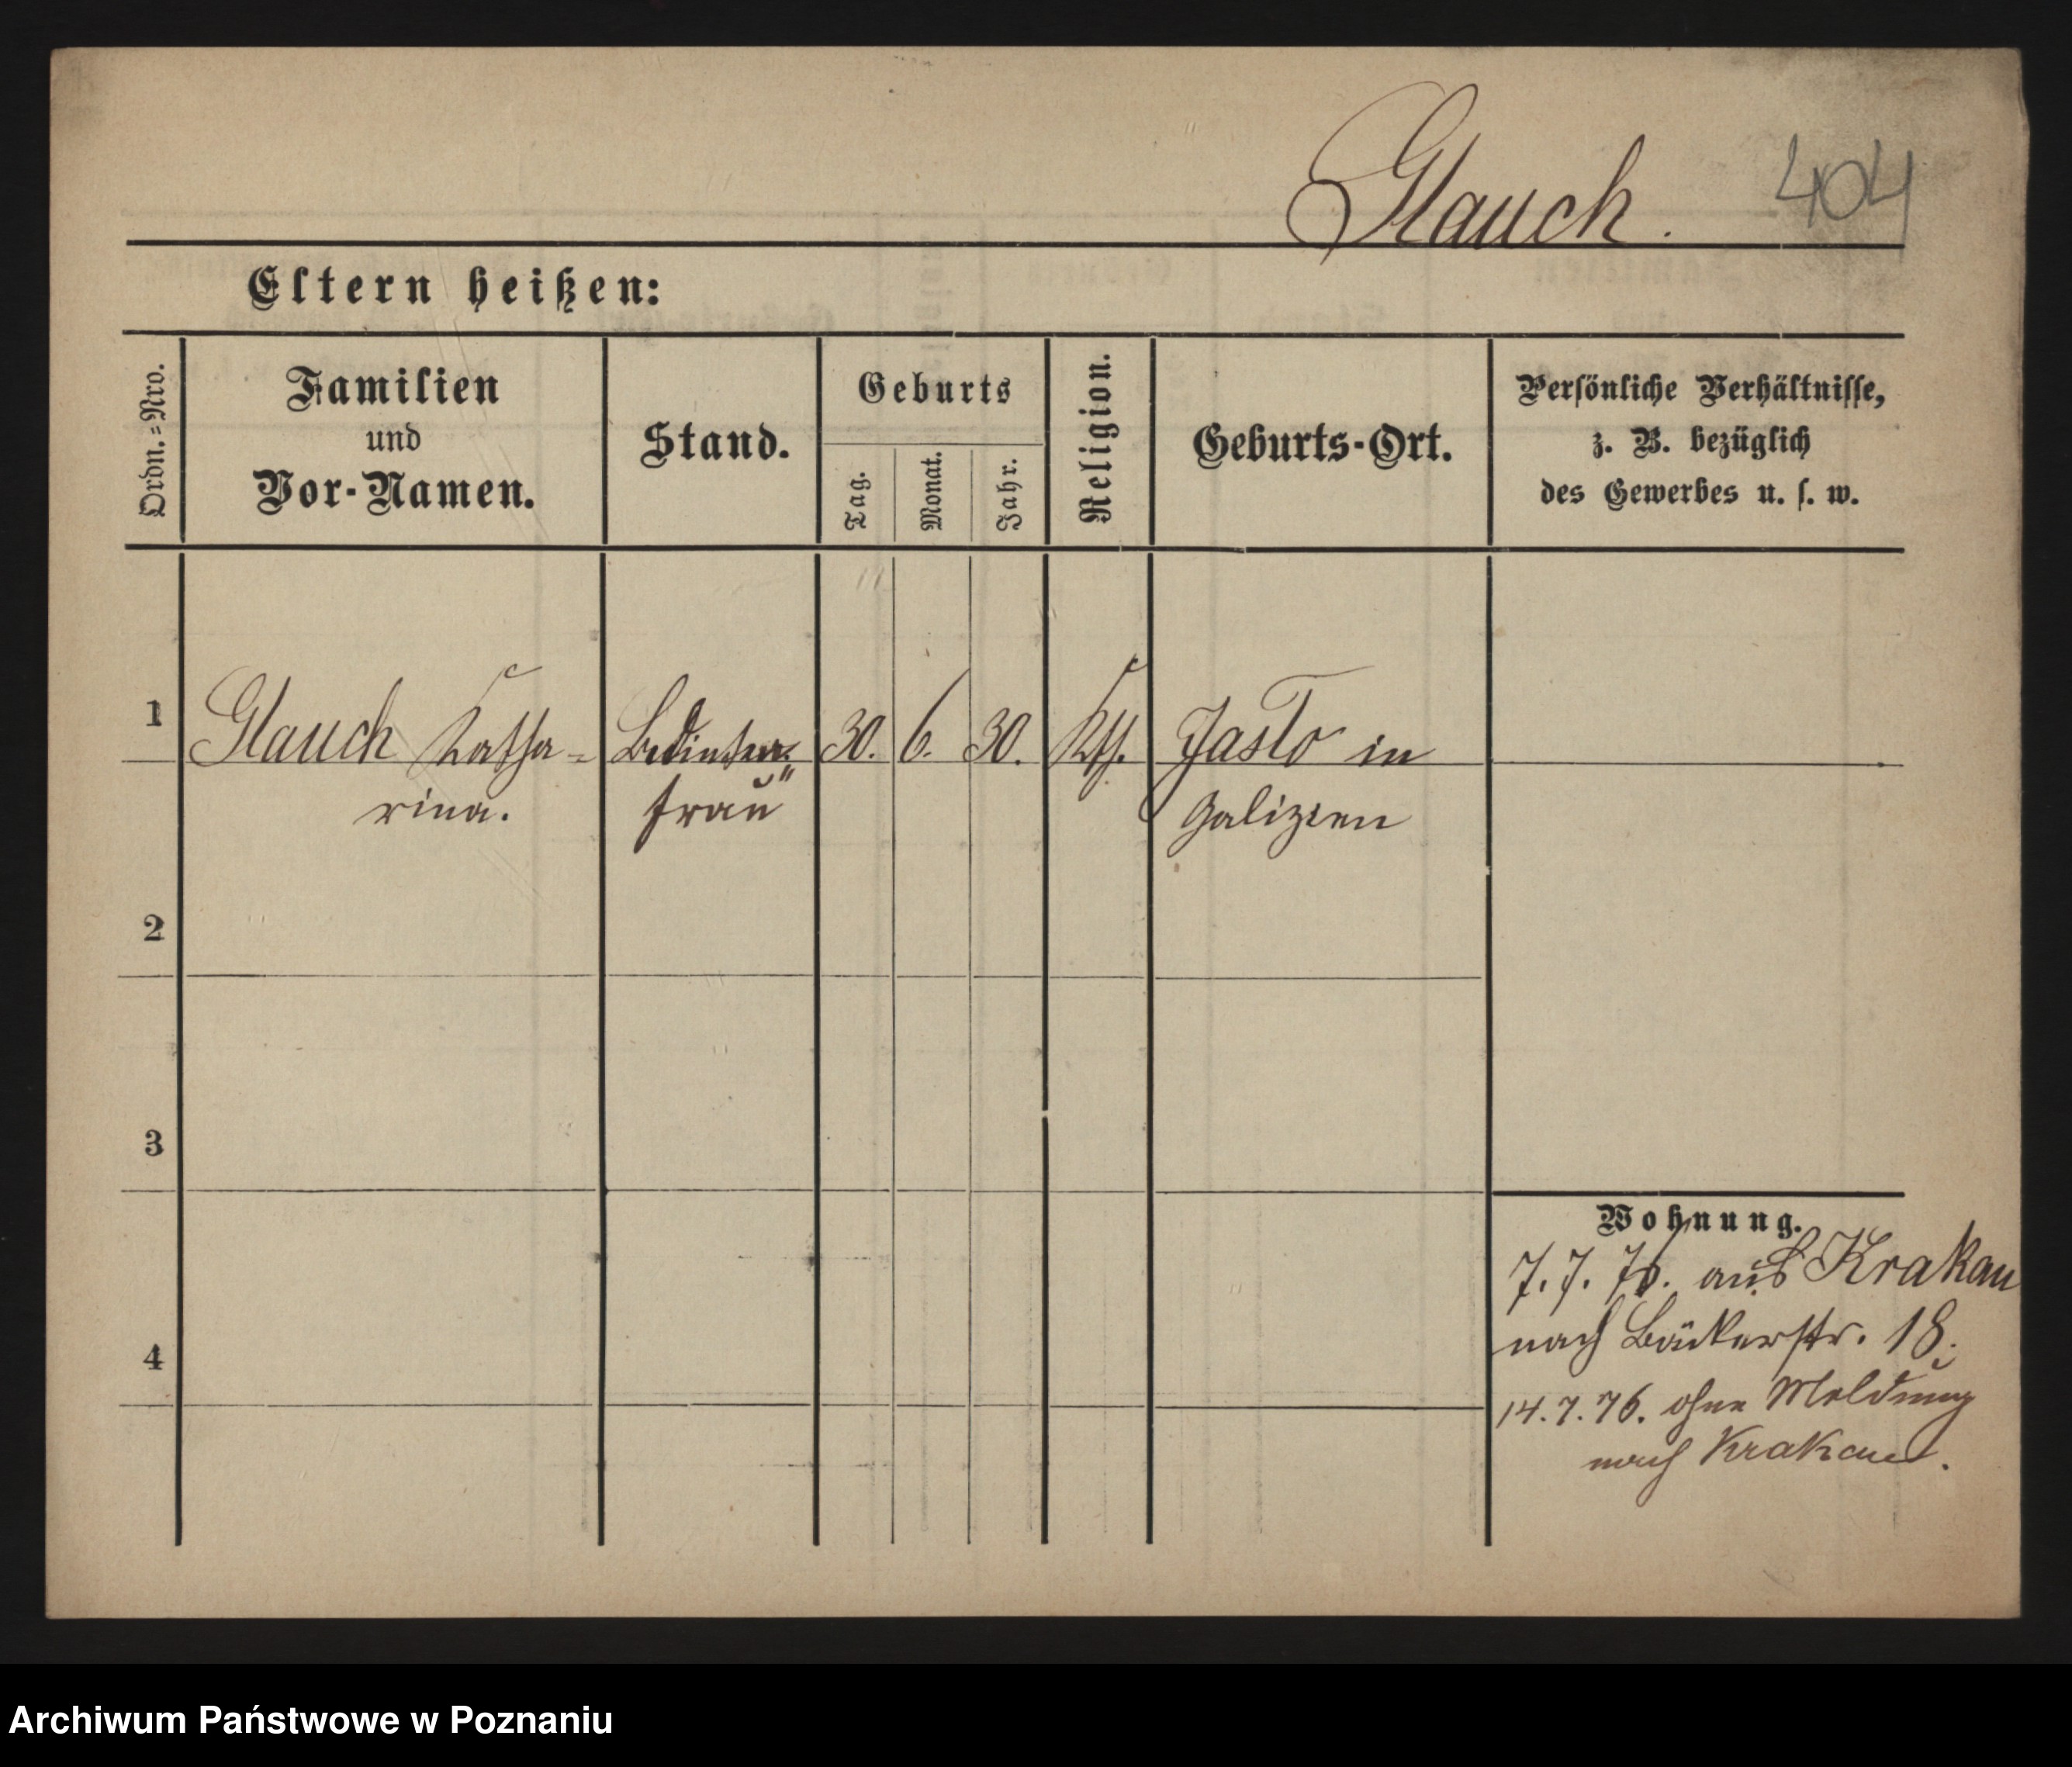 Glauch. 404
Eltern heißen:
Ordn.=Nro.
Familien
und
Vor-Namen.
Stand.
Geburts
Tag.
Monat.
Jahr.
Religion.
Geburts-Ort.
Persönliche Verhältnisse,
z. B. bezüglich
des Gewerbes u. s. w.
1
Glauch Katha=
rina.
frau
30. 6. 30. Kth.
Jaslo in
Galizien
2
3
4
Wohnung.
7. 7. 76. aus Krakau
nach Bäckerstr. 18.
14. 7. 76. ohne Meldung
nach Krakau.
Archiwum Państwowe w Poznaniu